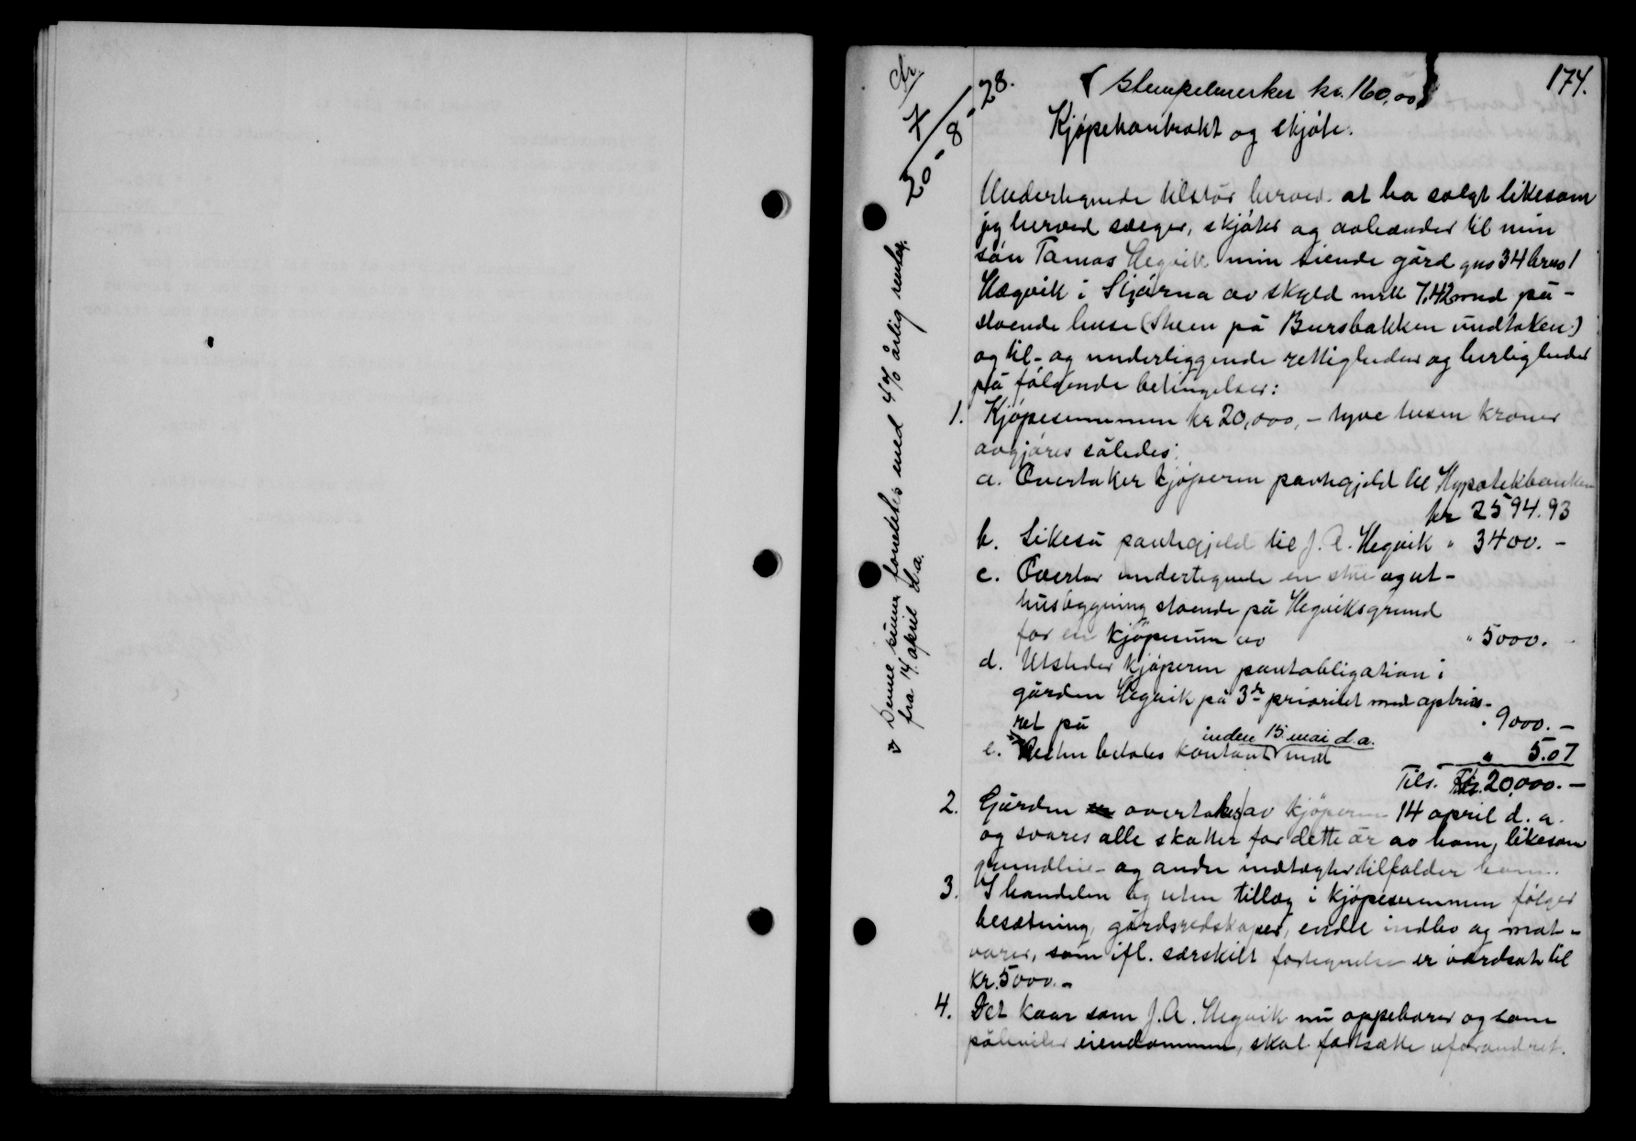 174.
(Stempelmerker kr. 160,00)
Kjøpekontrakt og skjøte.
7/20-8-28.
Undertegnede tilstår herved at ha solgt likesom
jeg herved sælger, skjøter og avhænder til min
søn Tamas Hegvik min eiende gård gno 34 brno 1
Hægvik i Stjørna av skyld mrk 7,42 med på-
stående huse (Stuen på Bursbakken undtaken)
og til- og underliggende rettigheder og herligheder
på følgende betingelser:
1. Kjøpesummen kr 20,000,- tyve tusen kroner
avgjøres således:
a. Overtaker kjøperen pantegjeld til Hypotekbanken
kr 2594.93
b. Likeså pantegjeld til J. A. Hegvik " 3400.-
c. Overtar undertegnede en stue og ut-
husbygning stående på Hegviksgrund
for en kjøpesum av " 5000.-
d. Utsteder kjøperen pantobligation i
gården Hegvik på 3dr prioritet med optrins-
ret på " 9000.-
e. Resten betales kontant inden 15 mai d.a. med " 5.07
Tils. Kr. 20,000.-
2. Gården overtakes av kjøperen 14 april d. a.
og svares alle skatter for dette år av ham, likesom
grundleie- og andre indtægter tilfalder ham.
3. I handelen og uten tillæg i kjøpesummen følger
besætning, gårdsredskaper, endel indbo og mat-
varer, som ifl. særskilt fortegnelse er værdsat til
kr. 5000.-
4. Det kaar som J. A. Hegvik nu oppebærer og som
påhviler eiendommen, skal fortsætte uforandret.
Denne summen forrentes med 4% årlig rente
fra 14. april d.a.